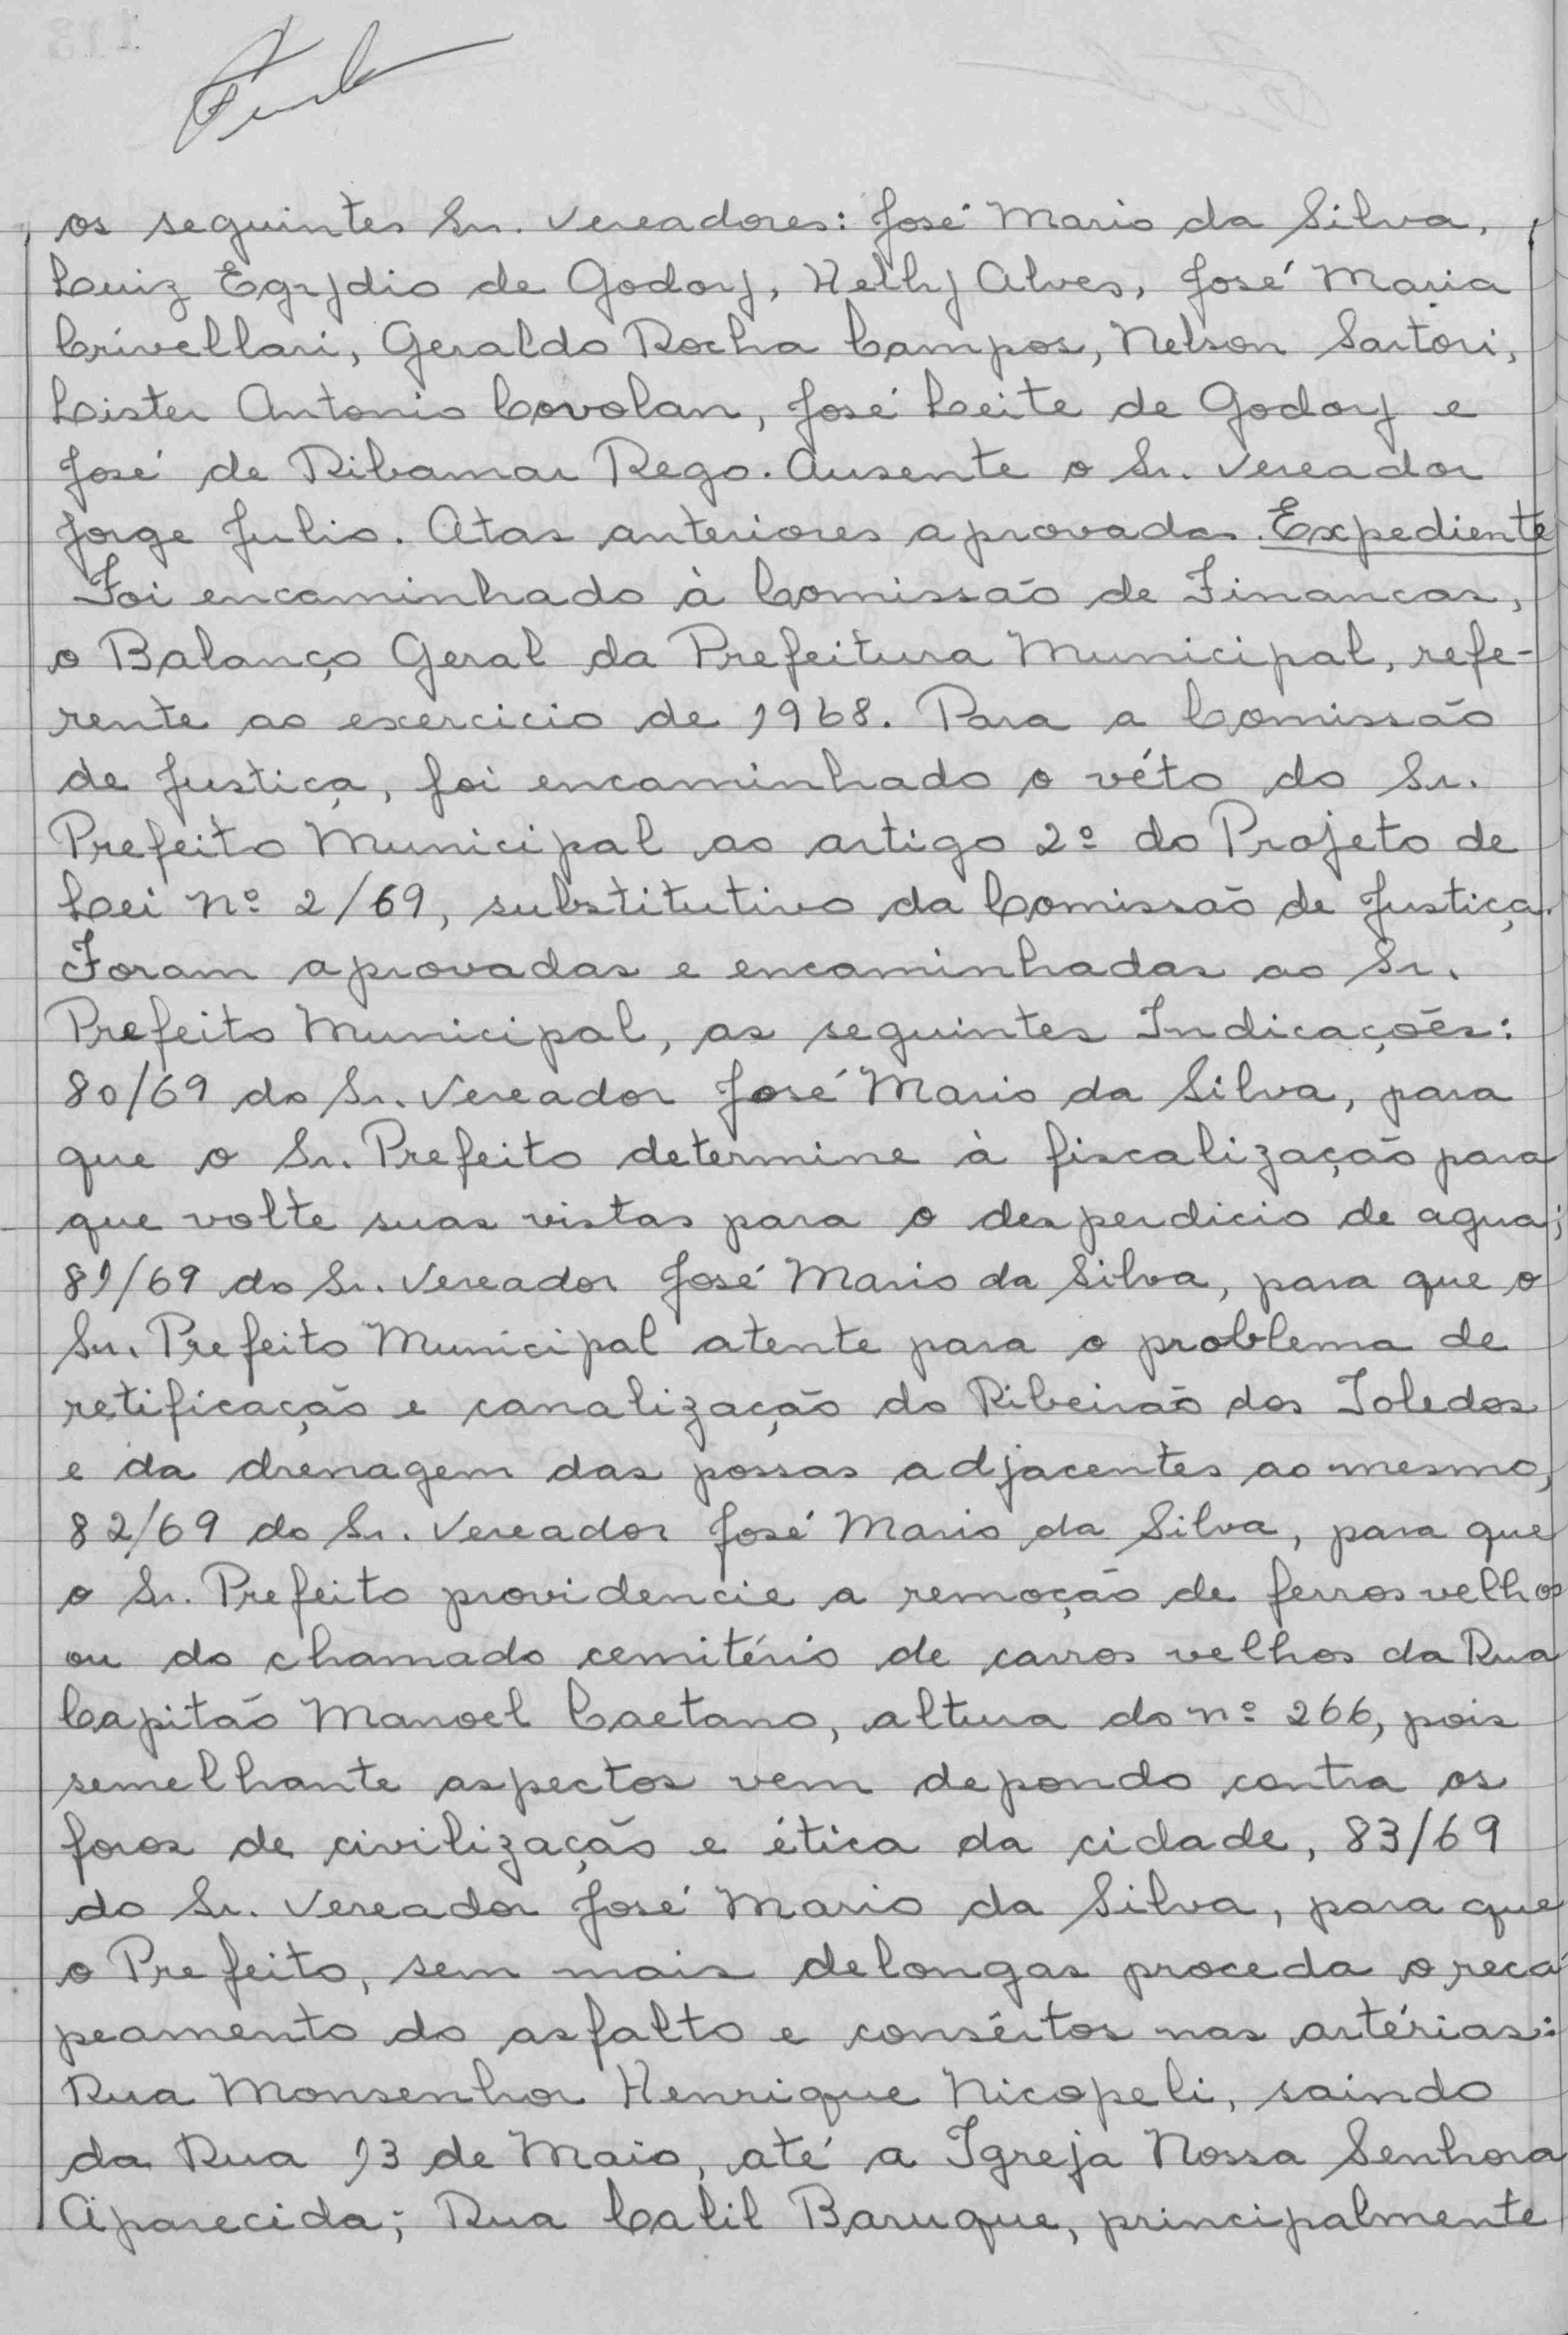 os seguintes Srs. Vereadores: José Mario da Silva,
Luiz Egydio de Godoy, Helly Alves, José Maria
Crivellari, Geraldo Rocha Campos, Nelson Sartori,
Lister Antonio Covolan, José Leite de Godoy e
José de Ribamar Rego. Ausente o Sr. Vereador
Jorge Julio. Atas anteriores aprovadas. Expediente
Foi encaminhado à Comissão de Financas,
o Balanço Geral da Prefeitura Municipal, refe-
rente ao exercicio de 1968. Para a Comissão
de Justiça, foi encaminhado o véto do Sr.
Prefeito Municipal ao artigo 2º do Projeto de
Lei nº 2/69, substitutivo da Comissão de Justiça.
Foram aprovadas e encaminhadas ao Sr.
Prefeito Municipal, as seguintes Indicações:
80/69 do Sr. Vereador José Mario da Silva, para
que o Sr. Prefeito determine à fiscalização para
que volte suas vistas para o desperdicio de agua;
81/69 do Sr. Vereador José Mario da Silva, para que o
Sr. Prefeito Municipal atente para o problema de
retificação e canalização do Ribeirão dos Toledos
e da drenagem das possas adjacentes ao mesmo,
82/69 do Sr. Vereador José Mario da Silva, para que
o Sr. Prefeito providencie a remoção de ferros velhos
ou do chamado cemitério de carros velhos da Rua
Capitão Manoel Caetano, altura do nº 266, pois
semelhante aspectos vem depondo contra os
foros de civilização e ética da cidade, 83/69
do Sr. Vereador José Mario da Silva, para que
o Prefeito, sem mais delongas proceda o reca
peamento do asfalto e consértos nas artérias:
Rua Monsenhor Henrique Nicopeli, saindo
da Rua 13 de Maio, até a Igreja Nossa Senhora
Aparecida; Rua Calil Baruque, principalmente